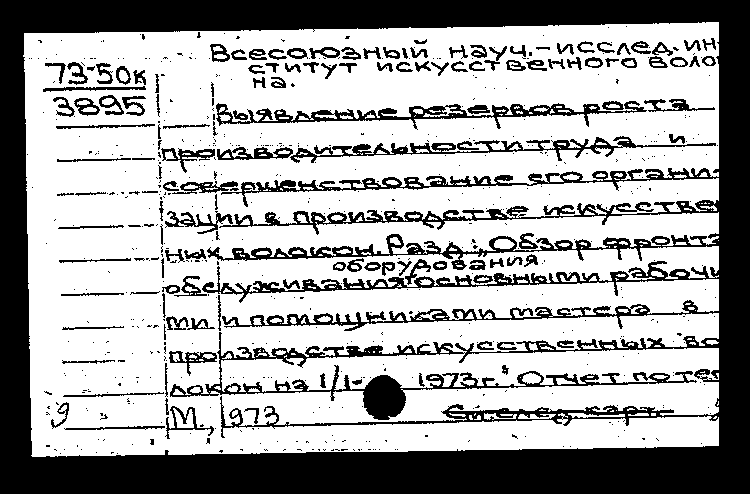 Всесоюзный науч.-исслед. ин-
73-50к
ститут искусственного воло
на.
3895
Выявление резервов роста
производительности труда и
совершенствование его органи-
зации в производстве искусстве
ных волокон. Разд.: „Обзор фронта
оборудования
обслуживания основными рабочи
ми и помощниками мастера в
производстве искусственных во
локон на 1/I- 1973г." Отчет по те
9 М., 1973.
См. след. карт.